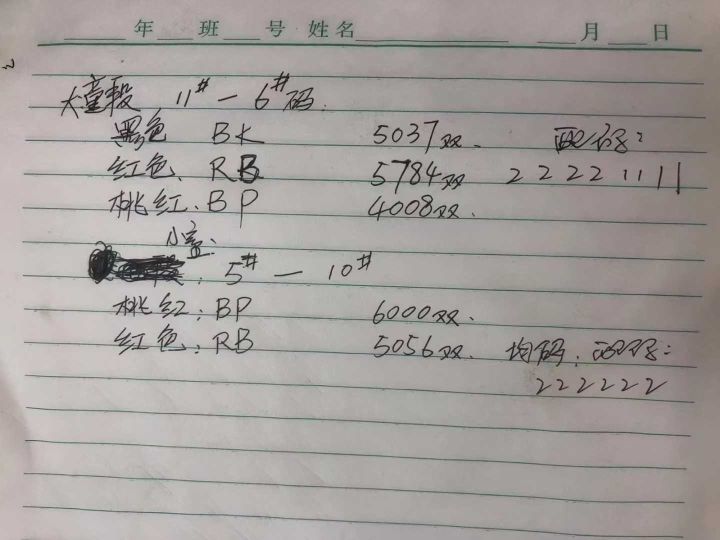 年 班 号 姓名 月 日
大童段 11# — 6#码.
黑色 BK 5037双. 配码:
红色. RB 5784双 2 2 2 2 1 1 1 1
桃红. BP 4008双.
小童:
5# — 10#
桃红: BP 6000双.
红色: RB 5056双. 均码. 配码:
2 2 2 2 2 2